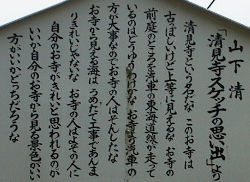 山下 清
「清見寺スケッチの思い出」より
清見寺という名だな このお寺は
古っぽいけど上等に見えるな お寺の
前庭のところを汽車の東海道線が走って
いるのはどういうわけかな お寺より汽車の
方が大事なのでお寺の人はそんしたな
お寺から見える海は うめたて工事であんまり
きれいじゃないな お寺の人はよその人に
自分のお寺がきれいと思われるのが
いいか自分のお寺から見る景色のいい
方がいいか どうだろうな